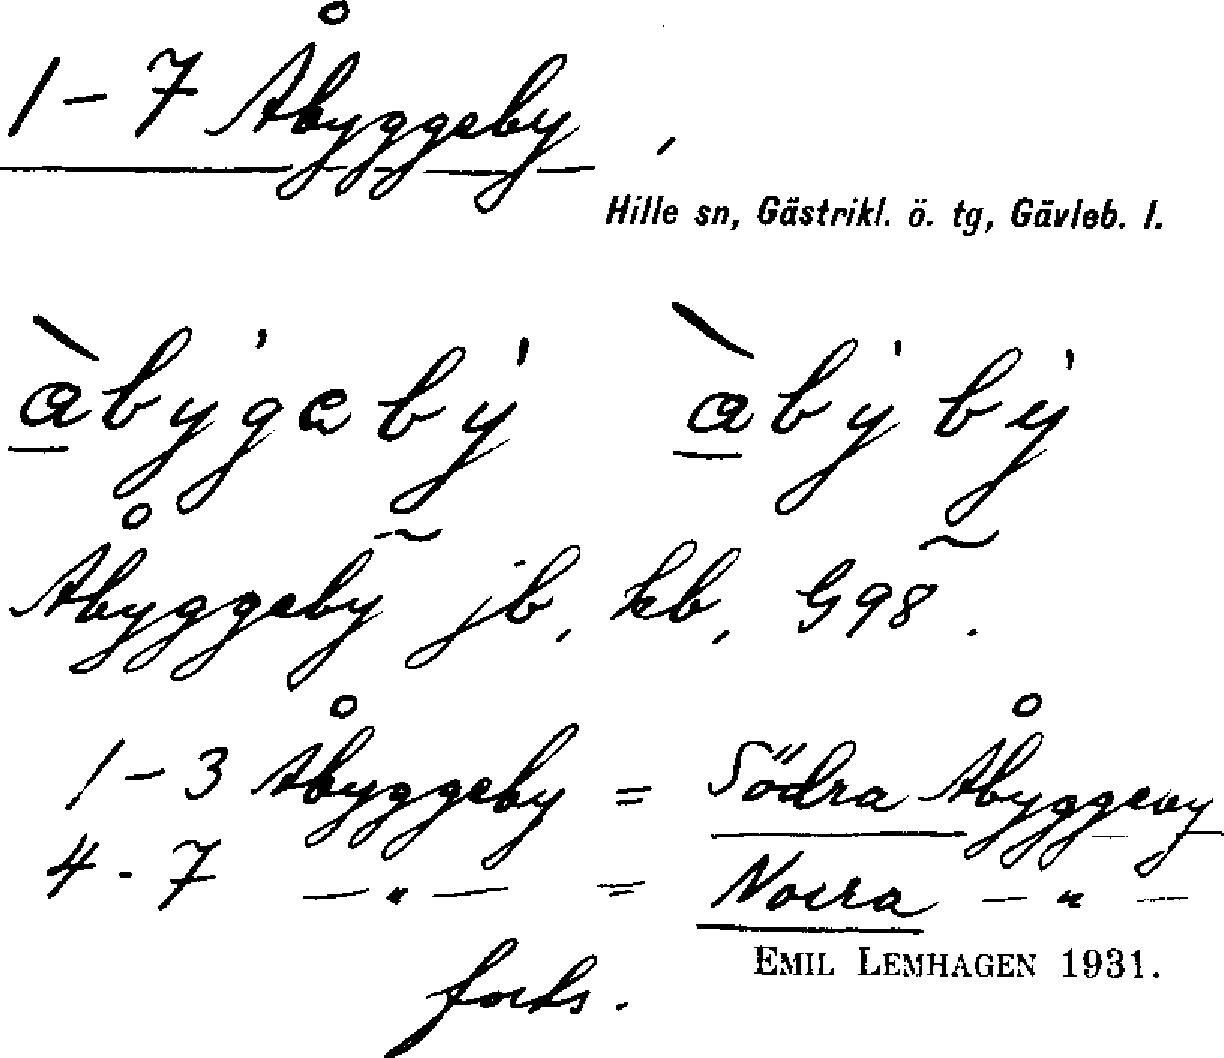 1-7 Åbyggeby,
Hille sn, Gästrikl. ö. tg, Gävleb. l.
àbyg̓əby̓ àby̓by̓
Åbyggeby jb, kb, G98.
1-3 Åbyggeby = Södra Åbyggeby
4-7 —"— = Norra —"—
EMIL LEMHAGEN 1931.
forts.